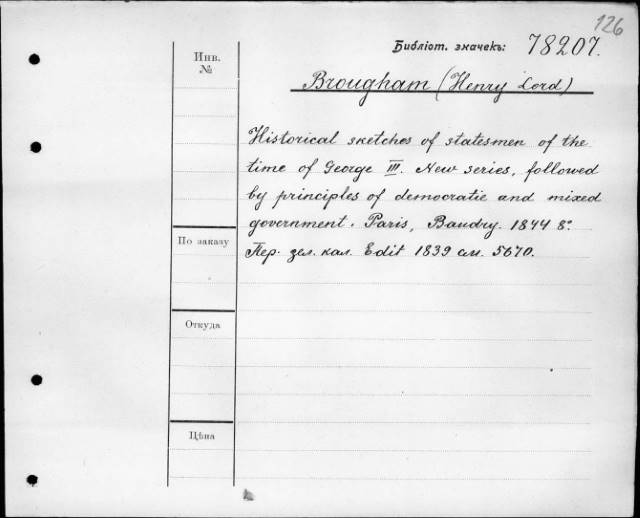 126
Библіот. значекъ: 78207.
Инв.
№
Brougham (Henry Lord)
Historical sketches of statesmen of the
time of George III. New series, followed
by principles of democratie and mixed
government. Paris, Baudry. 1844 8°.
Пер. зел. кал. Edit 1839 см. 5670.
По заказу
Откуда
Цѣна